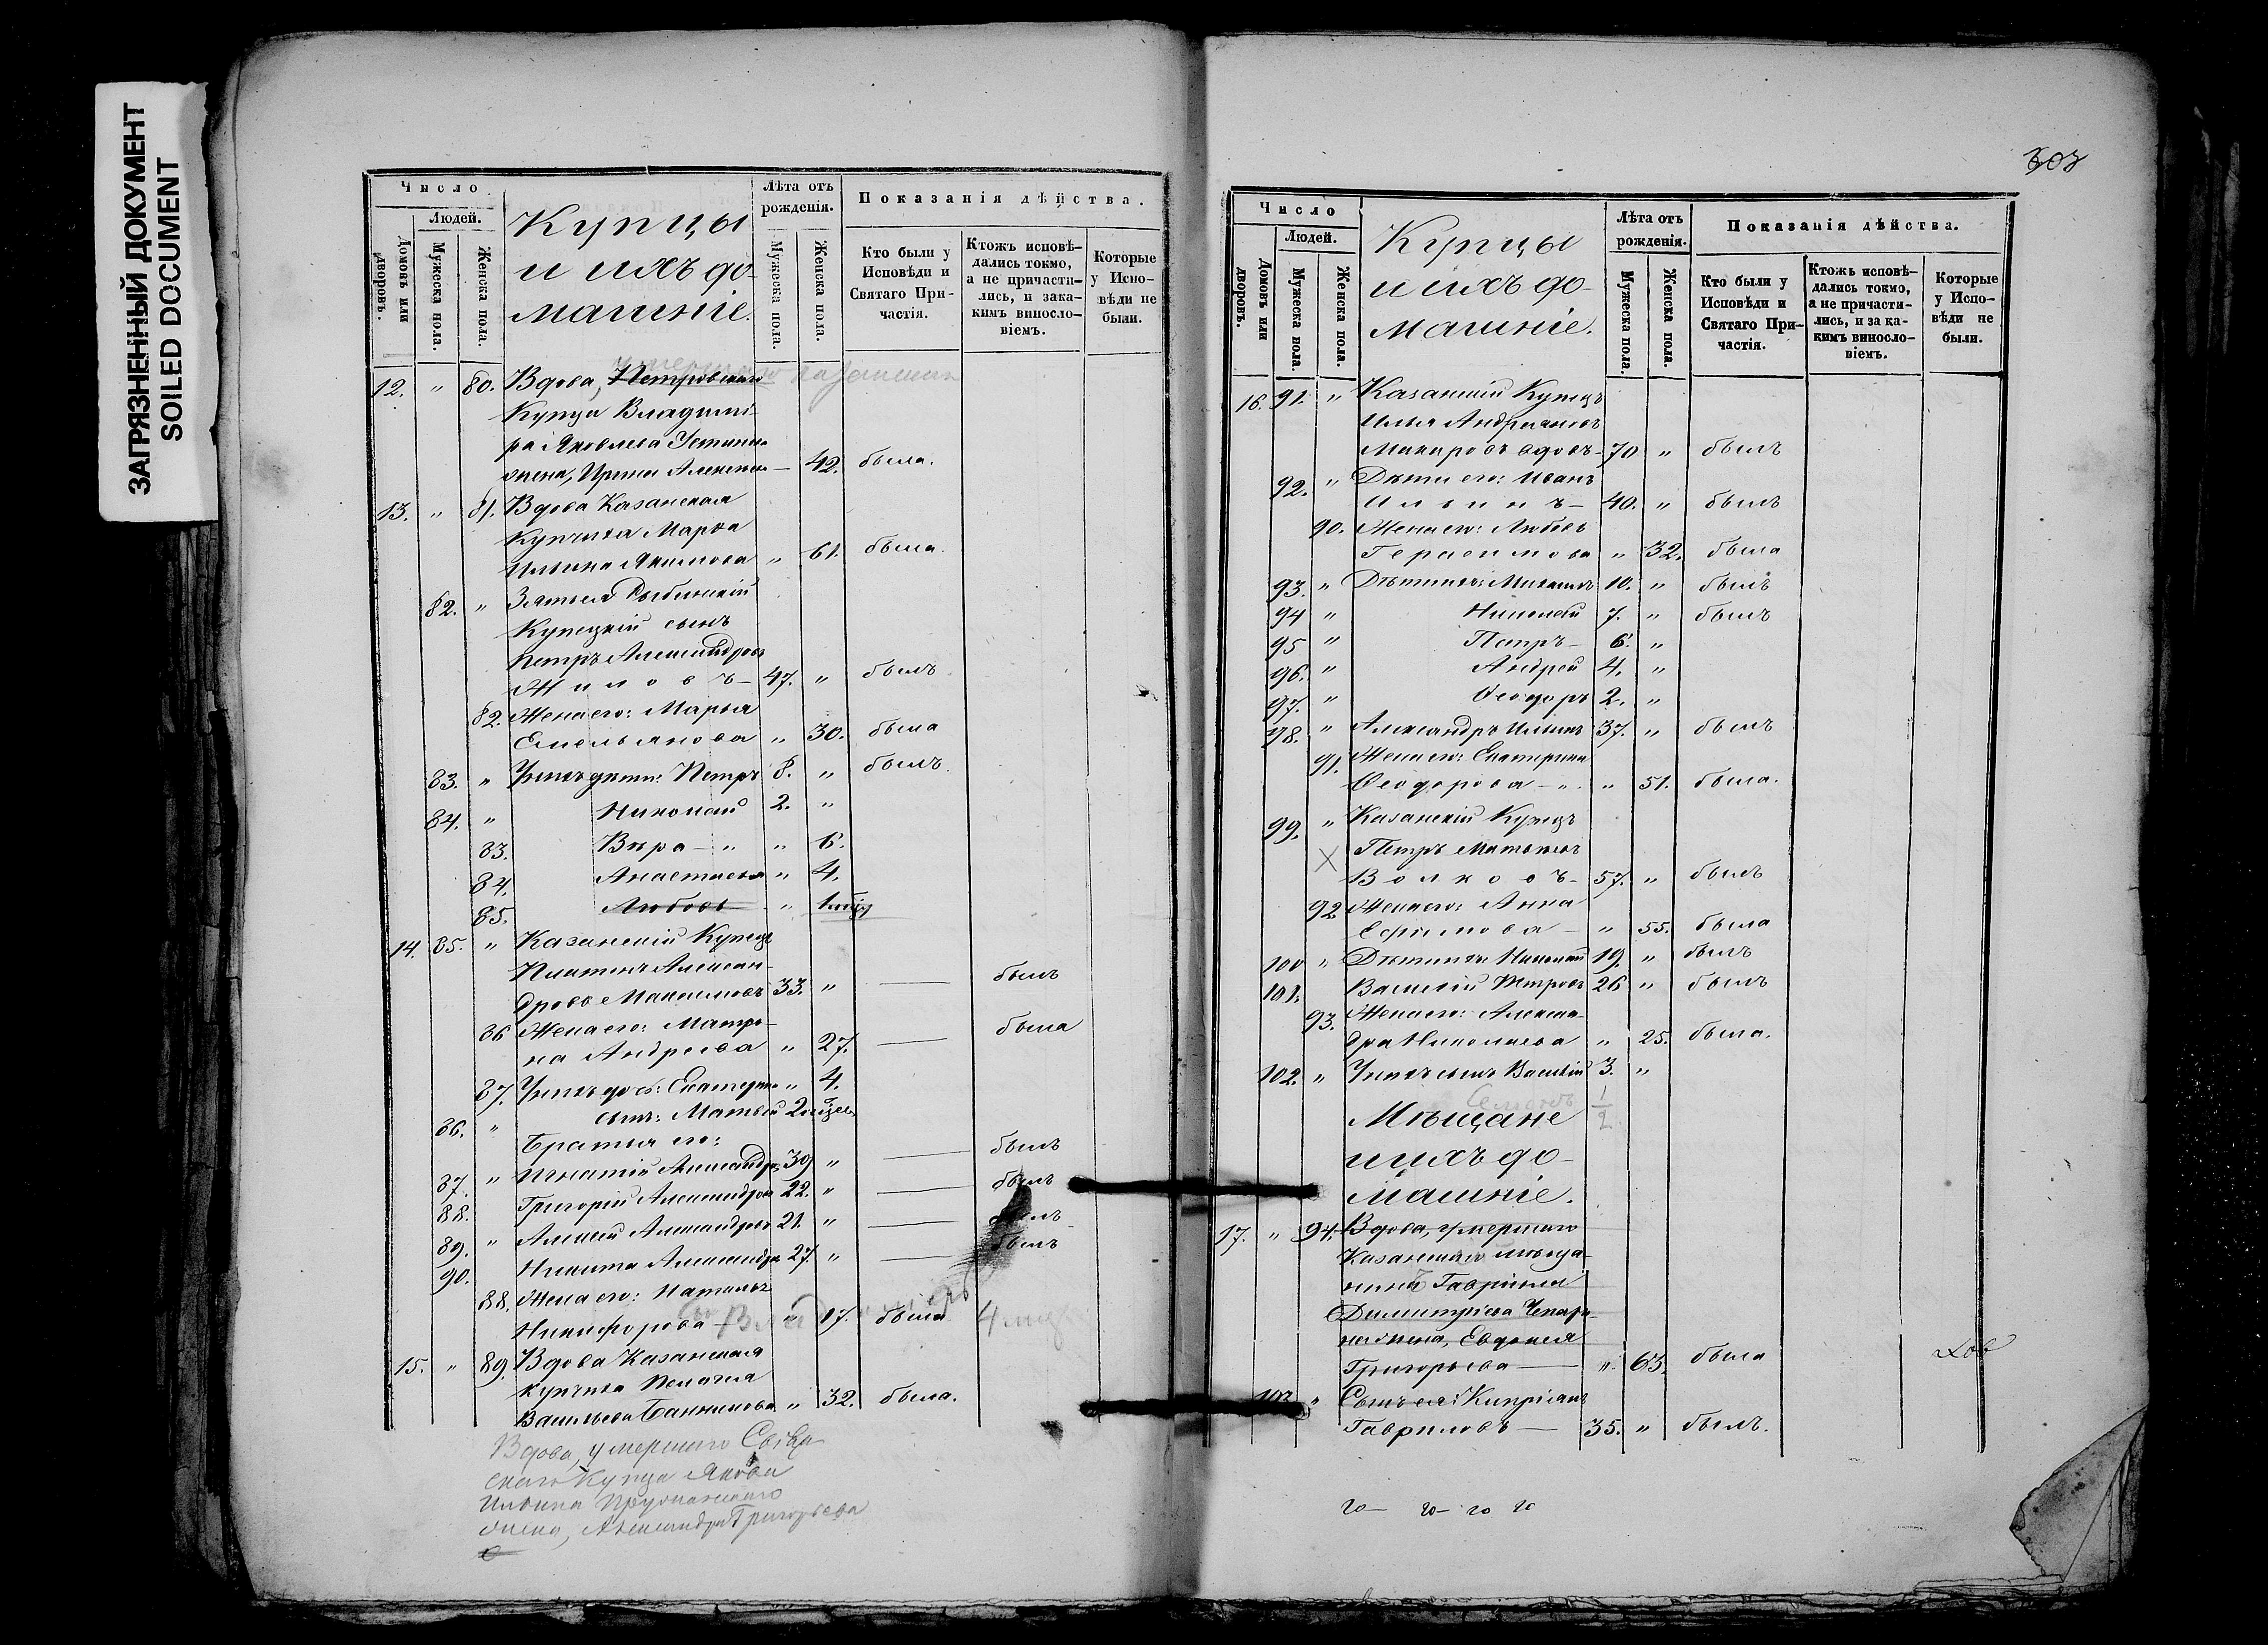 ЗАГРЯЗНЕННЫЙ ДОКУМЕНТ
SOILED DOCUMENT
Число
Людей.
Домовъ или дворовъ.
Мужеска пола.
Женска пола.
Купцы
и ихъ до-
машніе.
Лѣта отъ рожденія.
Мужеска пола.
Женска пола.
Показанія дѣйства.
Кто были у Исповѣди и Святаго При-частія.
Ктожъ исповѣ-дались токмо, а не причасти-лись, и зака-кимъ винosло-віемъ.
Которые у Испо-вѣди не были.
12. " 80. Вдова, Петровскаго
умершаго казанскаго
Купца Владимі-
ра Яковлева Устинова
жена, Ирина Алексѣева — 42. была.
13. " 81. Вдова Казанская
Купчиха Марѳа
Ильина Якимова " 61. была.
82. " Зятьея Рыбинскій
Купецкій сынъ
Петръ Александровъ
Жиловъ — 47. " былъ
82. Жена его: Марья
Емельянова " 30. была
83. " У нихъ дѣти: Петръ 8. " былъ.
84. " Николай 2. "
83. Вѣра — " " 6.
84. Анастасья " 4.
85. Любовь "
14. 85. " Казанскій Купецъ
Платонъ Алексан-
дровъ Максимовъ 33. " — былъ
86 Жена его: Матро-
на Андреева " 27. — была
87. У нихъ доч: Екатерина " 4.
86. " сынъ: Матвей
Братья его:
87. " Игнатій Александр. 30 " — былъ
88. Григорій Александровъ 22. " — былъ
89. " Алексей Александровъ 21. " — былъ
90. Никита Александр. 27. " — былъ
88. Жена его: Наталья
Никифорова — " 17. была
15. " 89. Вдова Казанская
купчиха Пелагея
Васильева Банникова " 32. была.
Вдова, умершаго
скаго Купца Якова
Ильина
жена, Александра Григорьева
Число
Людей.
Домовъ или дворовъ.
Мужеска пола.
Женска пола.
Купцы
и ихъ до-
машніе.
Лѣта отъ рожденія.
Мужеска пола.
Женска пола.
Показанія дѣйства.
Кто были у Исповѣди и Святаго При-частія.
Ктожъ исповѣ-дались токмо, а не причасти-лись, и за ка-кимъ винословіемъ.
Которые у Испо-вѣди не были.
16. 91. " Казанскій Купецъ
Илья Андреяновъ
Макаровъ вдовъ — 70 " былъ
92. " Дѣти его: Иванъ
Ильинъ — 40. " былъ
90. Жена его: Любовь
Герасимова " 32. была
93. " Дѣти ихъ: Михаилъ 10. " былъ
94 " Николай 7. " былъ
95 " Петръ — 6. "
96. " Андрей 4. "
97. " Ѳеодоръ 2. "
98. " Александръ Ильинъ 37. " былъ
91. Жена его: Екатерина
Ѳеодорова — " " 51. была.
99. " Казанскій Купецъ
Петръ Матвѣевъ
Волковъ — 57. " былъ
92 Жена его: Анна
Ефимова — " 55. была
100 " Дѣти ихъ Николай 19. " былъ
101. Василій Петровъ 26 " былъ
93. Жена его: Алексан-
дра Николаева " 25. была.
102. " У нихъ сынъ Василій 3. "
1/2
Мѣщане
и ихъ до-
машніе.
17. " 94. Вдова, умершаго
Казанскаго мѣща-
нина Гавріила
Димитріева
жена, Евдокея
Григорьева — " 65. была
103 " Сынъ ея: Кипріанъ
Гавриловъ — 35. " былъ.